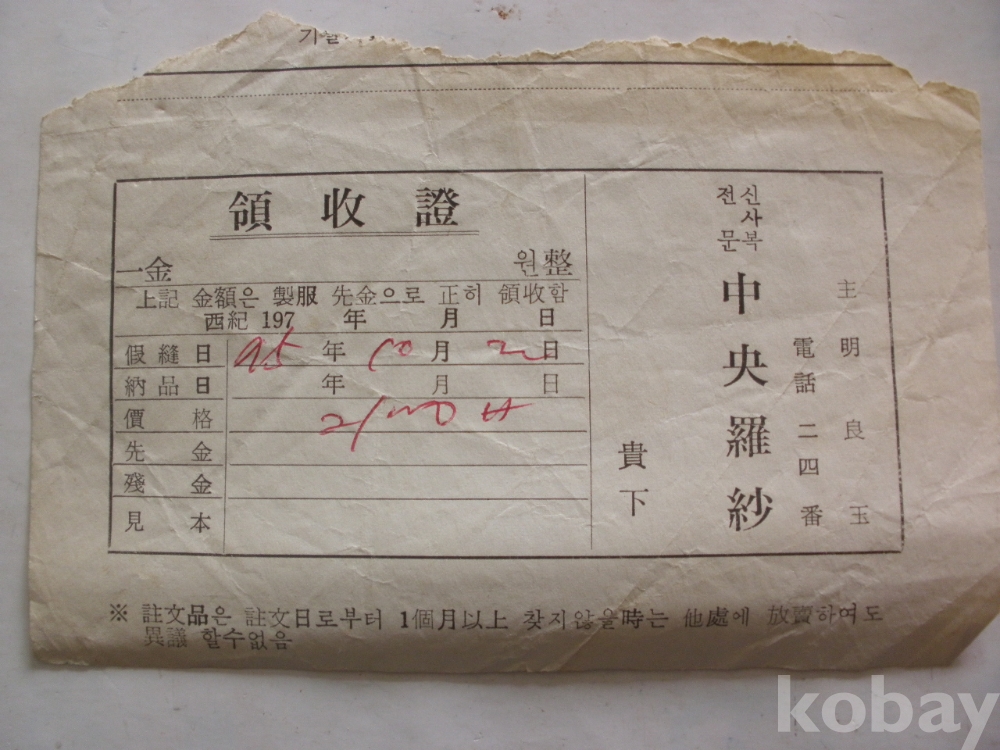 領收證
一金 원整
上記 金額은 製服 先金으로 正히 領收함
西紀 197 年 月 日
假縫日 年 10 月 日
納品日 年 月 日
價格
先金
殘金
見本
貴下
신사복
전문
中央羅紗
電話二四番
主 明良玉
※ 註文品은 註文日로부터 1個月以上 찾지않을時는 他處에 放賣하여도
異議 할수없음
kobay